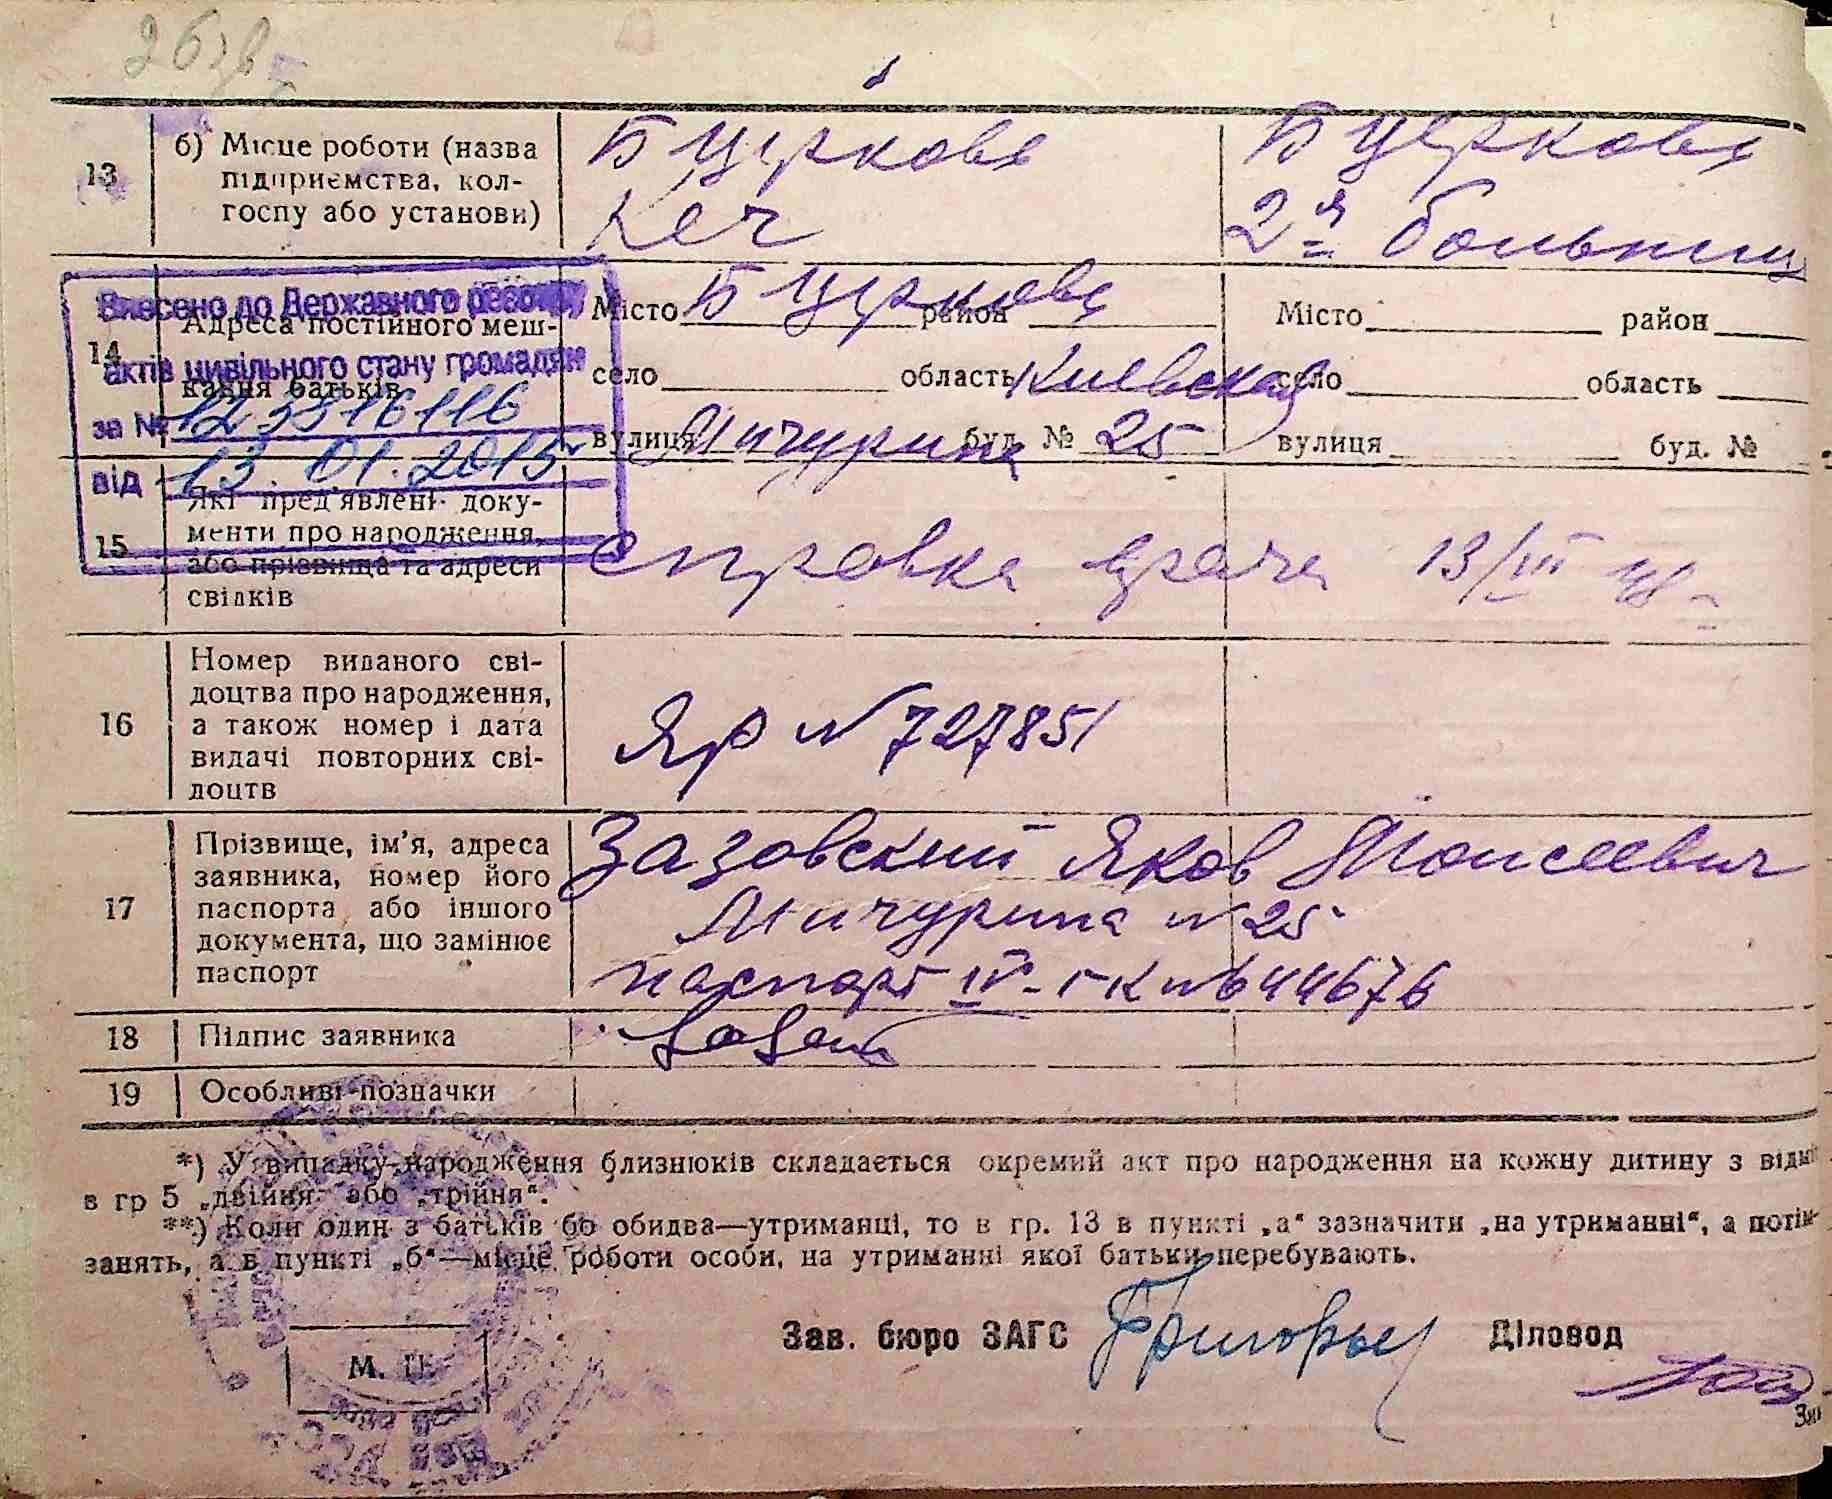 13
б) Місце роботи (назва
підприємства, кол-
госпу або установи)
Б Церковь
КЕЧ
Б Церковь
2я больниц
Внесено до Державного реєстру
актів цивільного стану громадян
за № 1233516116
від 13.01.2015
14
Адреса постійного меш-
кання батьків
Місто Б Церковь район
село область Киевская
вулиця Мичурина буд. № 25
Місто район
село область
вулиця буд. №
15
Які пред'явлені доку-
менти про народження,
або прізвища та адреси
свідків
справка врача 13/III 48
16
Номер виданого сві-
доцтва про народження,
а також номер і дата
видачі повторних сві-
доцтв
ЯР N 727851
17
Прізвище, ім'я, адреса
заявника, номер його
паспорта або іншого
документа, що замінює
паспорт
Зазовский Яков Моисеевич
Мичурина N 25
паспорт IV-ГК N 644676
18
Підпис заявника
19
Особливі позначки
*) У випадку народження близнюків складається окремий акт про народження на кожну дитину з відмі
в гр 5 „двійня" або „трійня".
**) Коли один з батьків бо обидва—утриманці, то в гр. 13 в пункті „а" зазначити „на утриманні", а потім
занять, а в пункті „б"—місце роботи особи, на утриманні якої батьки перебувають.
М. П.
Зав. бюро ЗАГС
Діловод